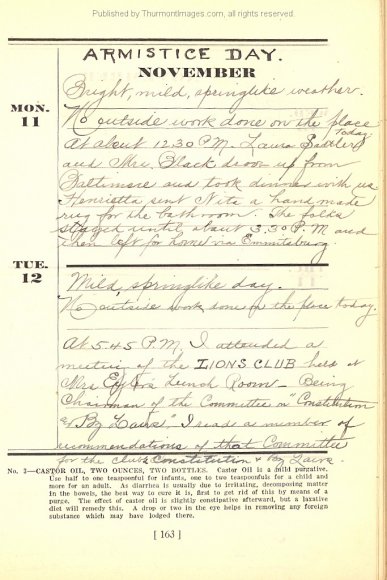 Published by ThurmontImages.com, all rights reserved.
ARMISTICE DAY.
NOVEMBER
MON.
11
Bright, mild, springlike weather.
No outside work done on the place
today.
At about 12:30 P.M. Laura
and Mrs. Black drove up from
Baltimore and took dinner with us.
Henrietta sent Nita a hand made
rug for the bath room. The folks
stayed until about 3.30 P.M and
then left for home via Emmitsburg.
TUE.
12
Mild, springlike day.
No outside work done on the place today.
At 5.45 P.M. I attended a
meeting of the LIONS CLUB held at
Mrs Lunch Room - Being
Chairman of the Committee on "Constitution
& By Laws" I read a number of
recommendations of that Committee
for the club Constitution & By Laws.
No. 3—CASTOR OIL, TWO OUNCES, TWO BOTTLES. Castor Oil is a mild purgative.
Use half to one teaspoonful for infants, one to two teaspoonfuls for a child and
more for an adult. As diarrhea is usually due to irritating, decomposing matter
in the bowels, the best way to cure it is, first to get rid of this by means of a
purge. The effect of castor oil is slightly constipative afterward, but a laxative
diet will remedy this. A drop or two in the eye helps in removing any foreign
substance which may have lodged there.
[ 163 ]